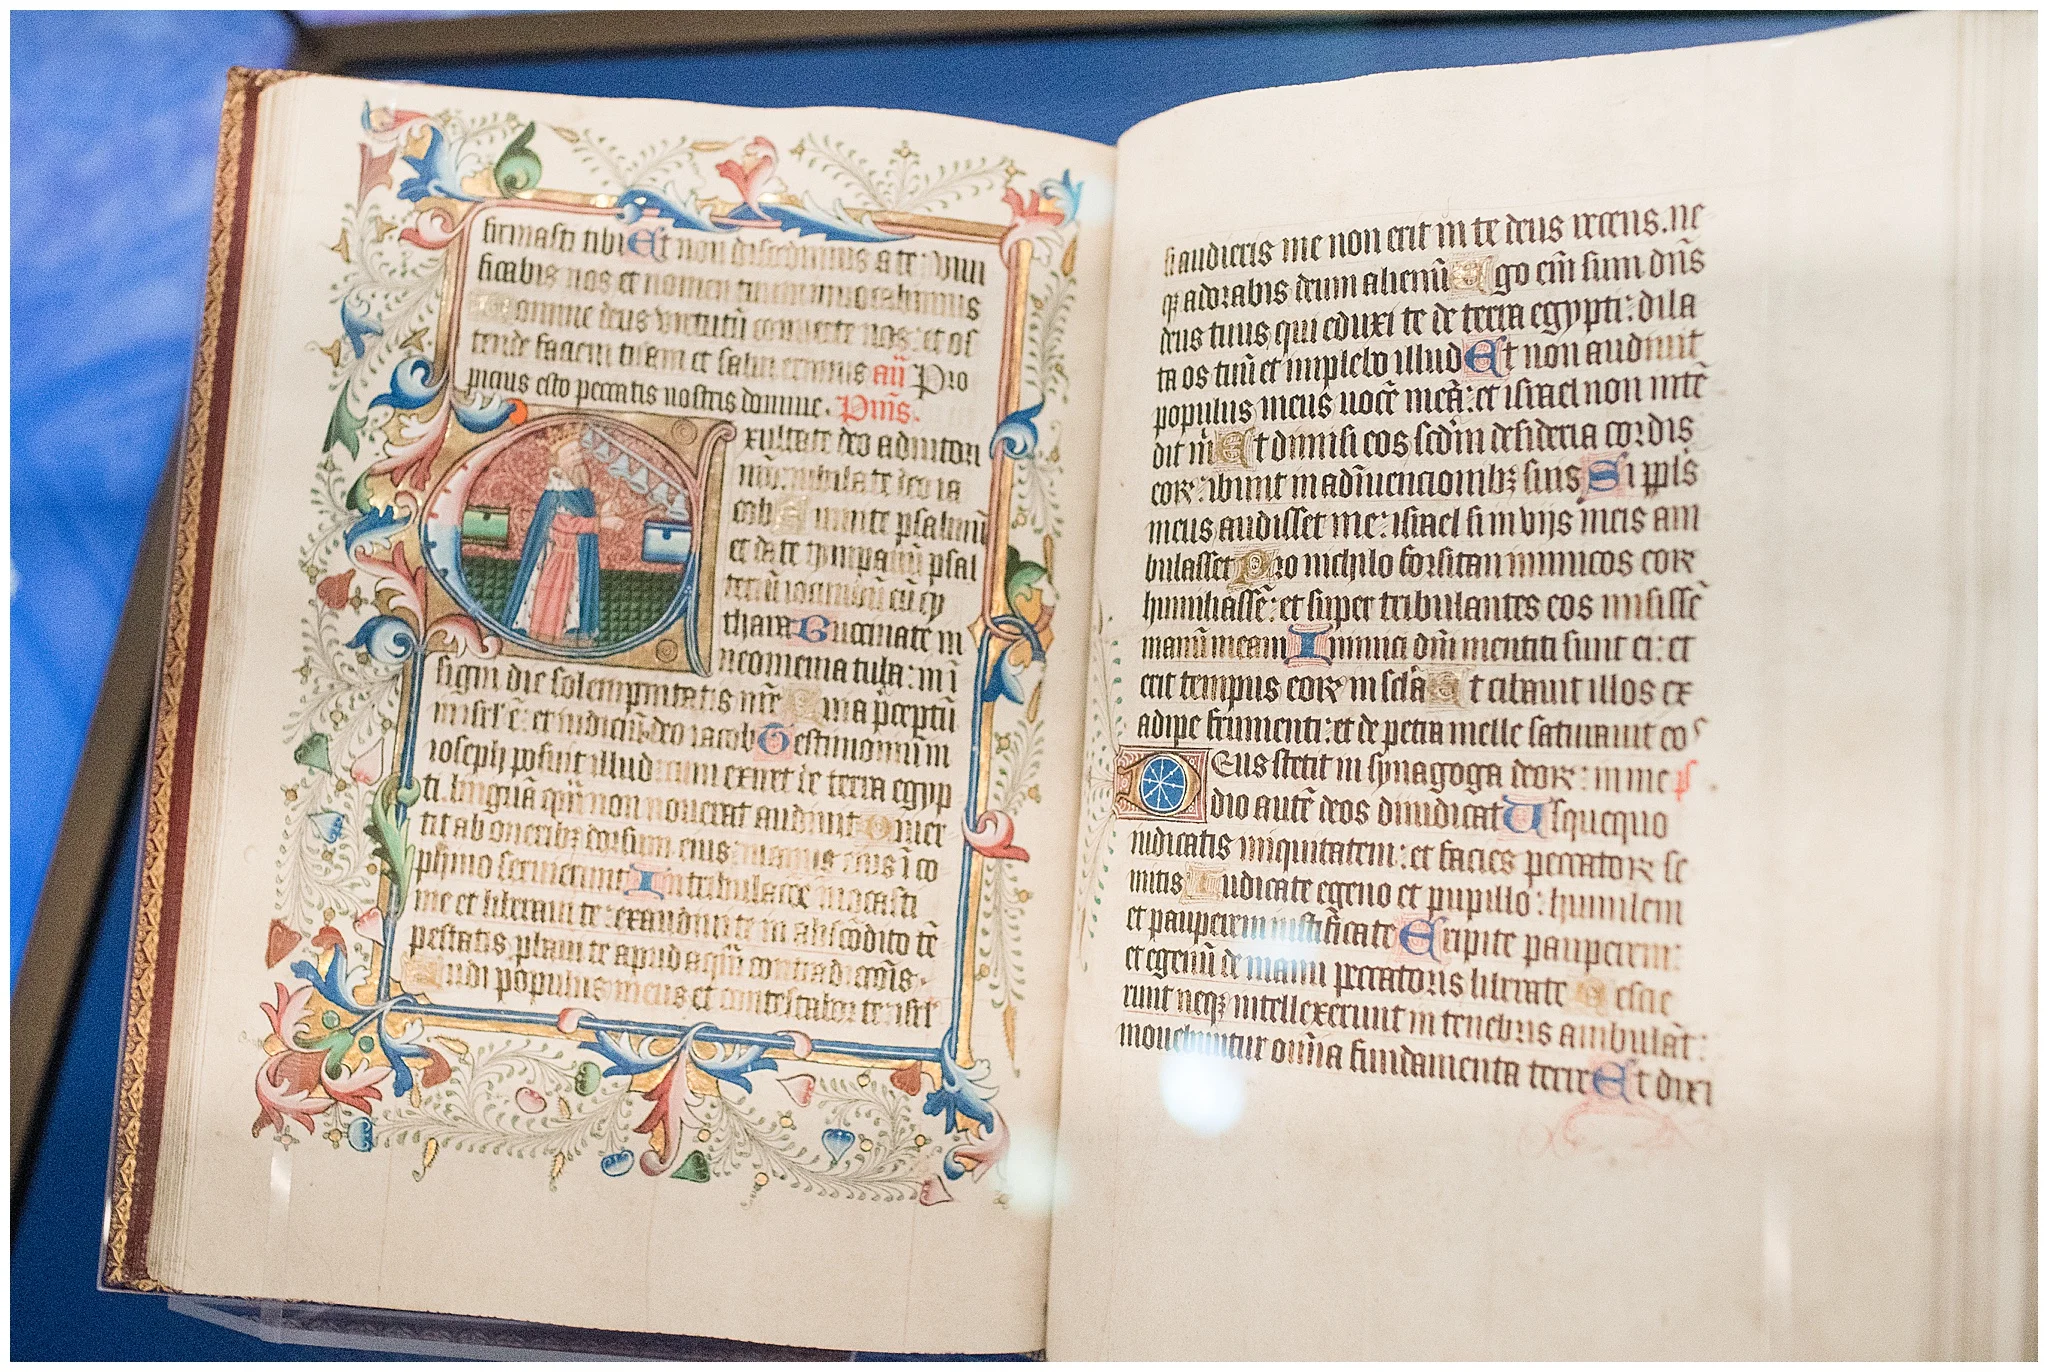 firmasti tibi Et non discedimus a te: vivi
ficabis nos et nomen tuum invocabimus
Domine deus virtutū converte nos: et os
tende faciem tuam et salvi erimus añ Pro
picius esto peccatis nostris domine. Psm̄s.
Exultate deo adiutori
nr̄o: iubilate deo ia
cob Sumite psalmū
et date tympanū psal
teriū iocundū cū cy
thara Buccinate in
neomenia tuba: in ī
signi die solempnitatis nr̄e Quia p̄ceptū
in isrl' ē: et iudiciū deo iacob Testimonium in
ioseph posuit illud: cum exiret de terra egyp
ti. linguā quā non noverat audivit Diver
tit ab oneribꝫ dorsum eius: manus eius ī co
phino servierunt In tribulacōe invocasti
me et liberavi te: exaudivi te in abscōdito tē
pestatis, plavi te apud aquā contradiccōis.
Audi populus meus et contestabor te: isrl'
si audieris me non erit in te deus recens. ne
qꝫ adorabis deum alienū Ego em̄ sum dn̄s
deus tuus, qui eduxi te de terra egypti: dila
ta os tuū et implebo illud Et non audivit
populus meus vocē meā: et israel non intē
dit m̄ Et dimisi eos scd̄m desideria cordis
eoꝝ: ibunt in adīvencionibꝫ suis Si ppl̄s
meus audisset me: israel si in viis meis am
bulasset Pro nichilo forsitan inimicos eoꝝ
humiliassē: et super tribulantes eos misissē
manū meam Inimici dn̄i mentiti sunt ei: et
erit tempus eoꝝ in scl̄a Et cibavit illos ex
adipe frumenti: et de petra melle saturavit eos
Deus stetit in synagoga deoꝝ: in me ps̄
dio autē deos diiudicat Usquequo
iudicatis iniquitatem: et facies peccatoꝝ su
mitis Iudicate egeno et pupillo: humilem
et pauperem iustificate Eripite pauperem:
et egenū de manu peccatoris liberate Nescie
runt neqꝫ intellexerunt in tenebris ambulāt:
movebuntur om̄ia fundamenta terre Et dixi